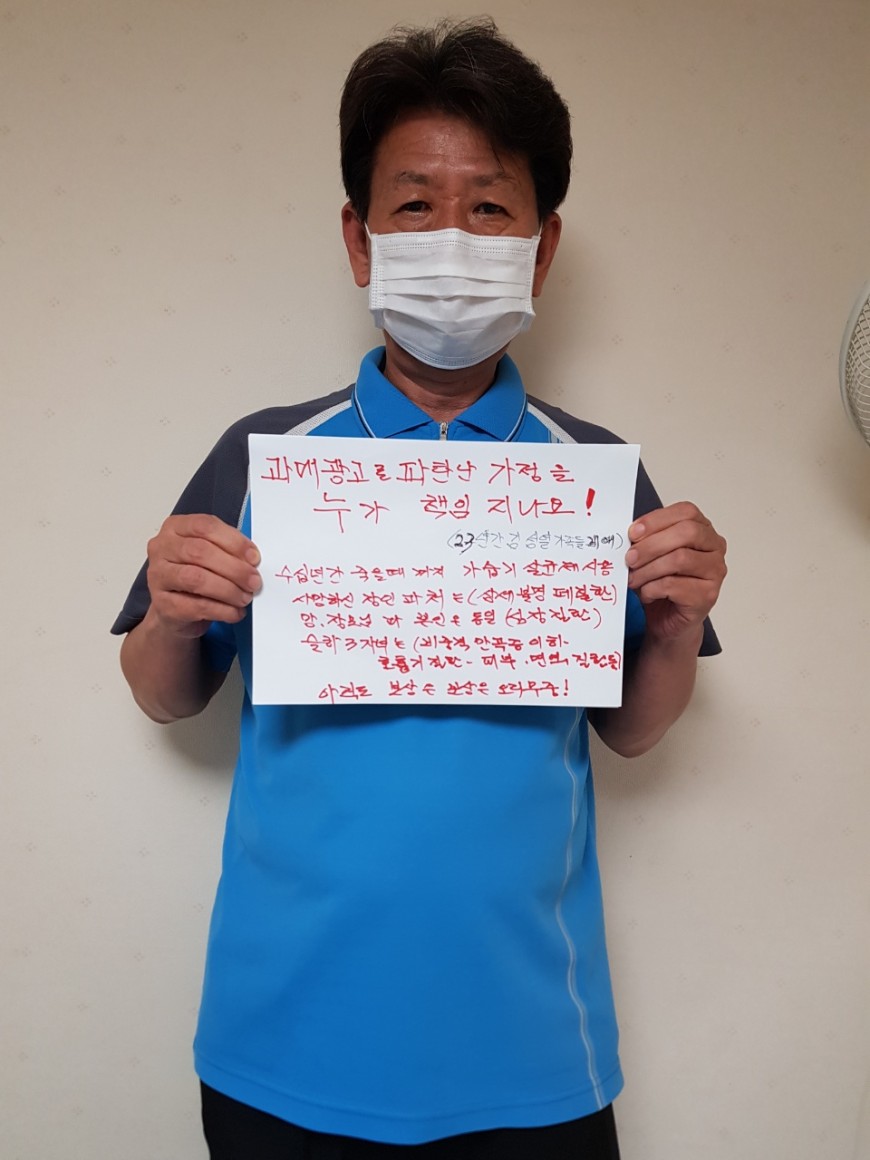 과대광고로 파탄난 가정을
누가 책임 지나요!
(23년간 가족들
수십년간 죽을때 까지 가습기 살균제 사용
사망하신 장인 과 처는 (상세불명 폐질환)
암. 장모님 과 본인은 동일 (심장질환)
슬하 3자녀는 (비중격 만곡증 이하.
호흡기 질환 - 피부. 면역. 질환들)
아직도 보상은 오리무중!